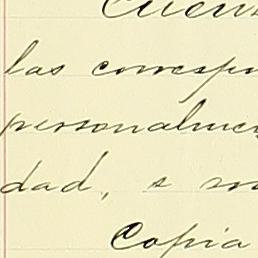 Cuen
las correspon
personalmen
dad, e m
Copia